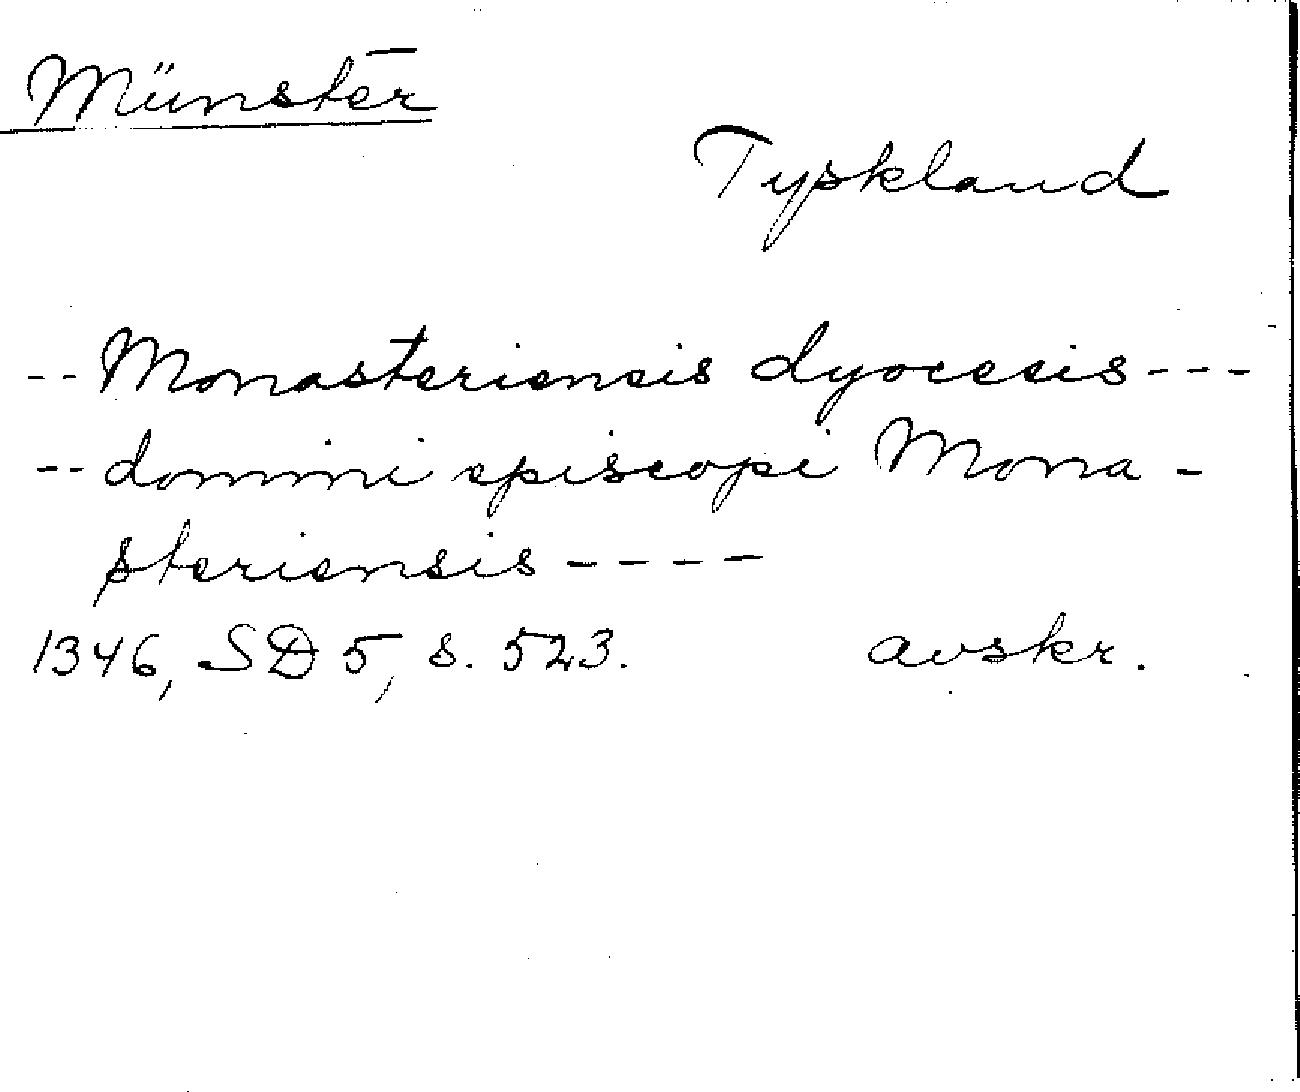 Münster
Tyskland
-- Monasteriensis dyocesis ---
-- domini episcopi Mona-
steriensis ----
1346, SD 5, s. 523. avskr.